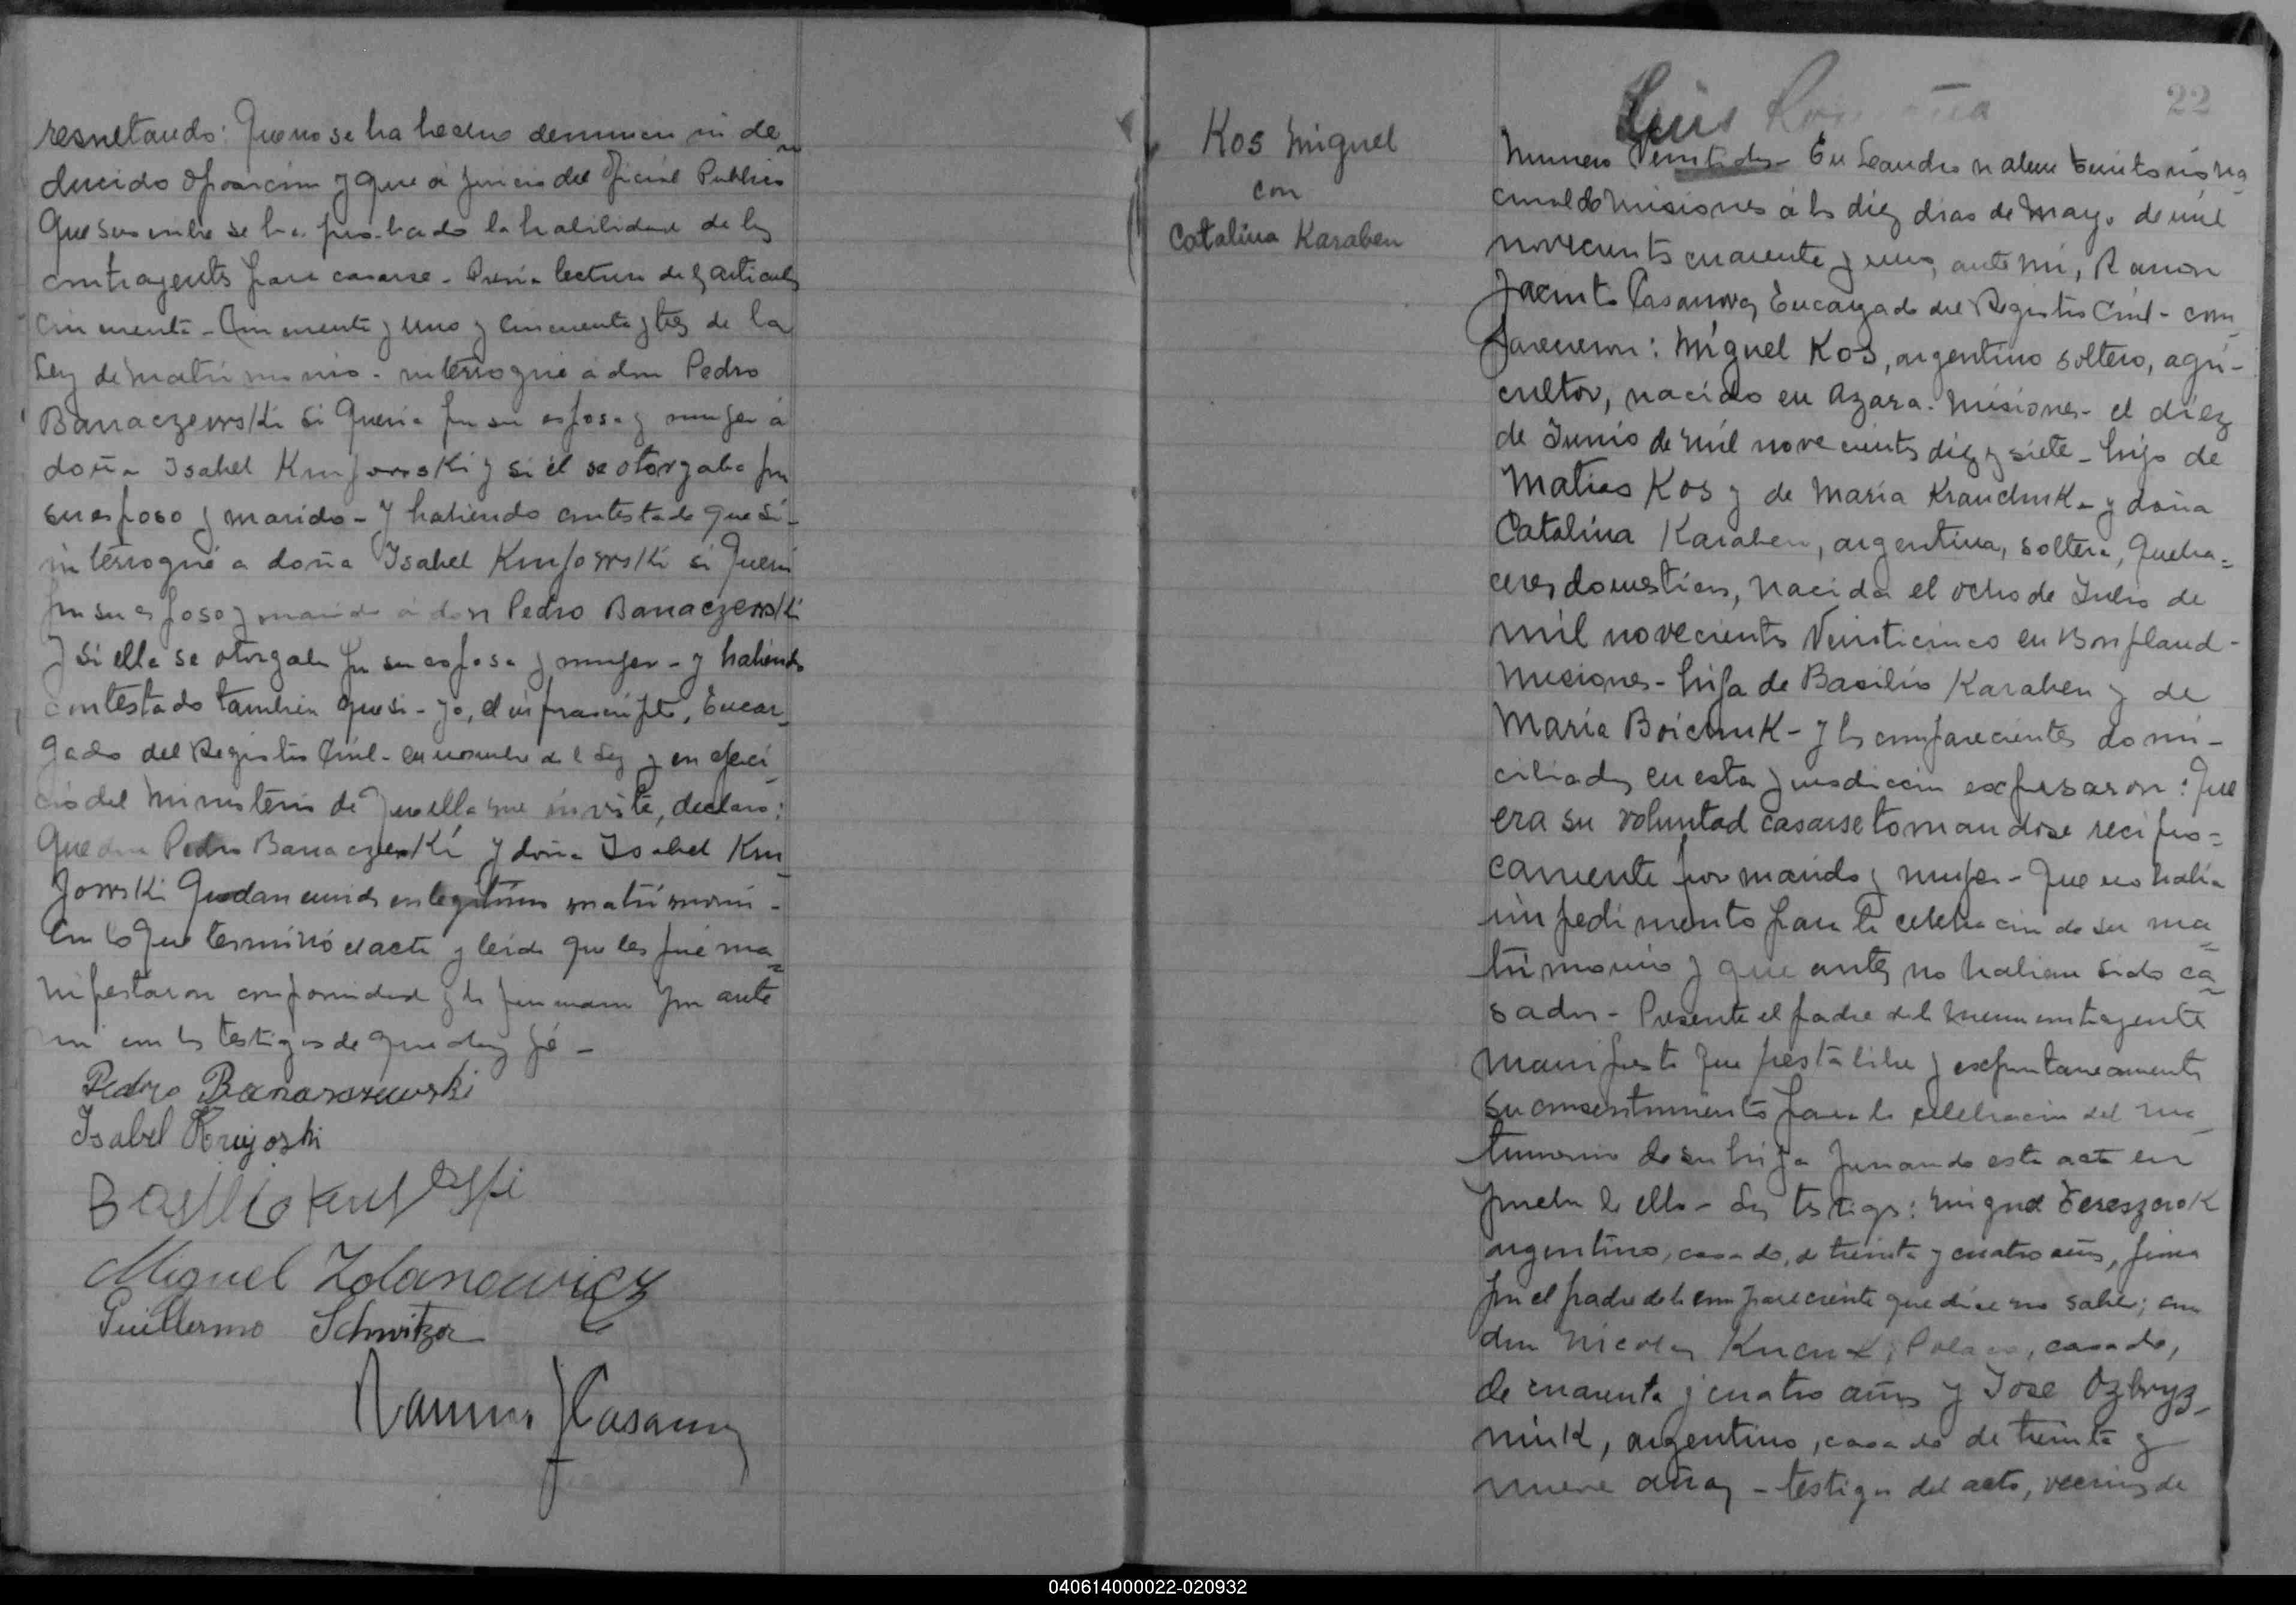 resultando: Que no se ha hecho denuncia ni de_
ducido oposicion y que á juicio del Oficial Publico
que suscribe se ha probado la habilidad de los
contrayentes para casarse - Previa lectura de los articulos
cincuenta - Cincuenta y uno y cincuenta y tres de la
Ley de Matrimonio - interrogué á don Pedro
Banaczewski si queria por su esposa y mujer á
doña Isabel Knujowski y si él se otorgaba por
su esposo y marido - Y habiendo contestado que si -
interrogué a doña Isabel Knujowski si queria
por su esposo y marido á don Pedro Banaczewski
y si ella se otorgaba por su esposa y mujer - y habiendo
contestado tambien que si - yo, el infrascripto, Encar_
gado del Registro Civil - en nombre de la Ley y en ejerci_
cio del ministerio de que ella me inviste, declaro:
Que don Pedro Banaczewski y doña Isabel Knu_
jowski quedan unidos en legitimo matrimonio -
Con lo que terminó el acta y leida que les fué ma_
nifestaron conformidad y la firmaron por ante
mi con los testigos de que doy fé -
Pedro Banaszewski
Isabel Knujoski
Basilio
Miguel Zdanowicz
Guillermo Schwitzer
Ramon J Casanova
22
Luis
Kos Miguel
con
Catalina Karaben
Numero Veintidos - En Leandro N Alem territorio na_
cional de Misiones á los diez dias de Mayo de mil
novecientos cuarenta y uno, ante mi, Ramon
Jacinto Casanova, Encargado del Registro Civil - com_
parecieron: Miguel Kos, argentino soltero, agri-
cultor, nacido en Azara - Misiones - el diez
de Junio de mil novecientos diez y siete - hijo de
Matias Kos y de Maria Krauchuk - y doña
Catalina Karaben, argentina, soltera, queha=
ceres domesticos, nacida el ocho de Julio de
mil novecientos Veinticinco en Bonpland -
Misiones - hija de Basilio Karaben y de
Maria Boichuk - y los comparecientes domi-
ciliados en esta jurisdiccion expresaron: que
era su voluntad casarse tomandose recipro=
camente por marido y mujer - Que no habia
impedimento para la celebracion de su ma_
trimonio y que antes no habian sido ca_
sados - Presente el padre de la menor contrayente
manifestó que presta libre y expontaneamente
su consentimiento para la celebracion del ma_
trimonio de su hija firmando esta acta en
prueba de ello - Los testigos: Miguel Tereszczuk
argentino, casado, de treinta y cuatro años, firma
por el padre de la compareciente que dice no saber; con
don Nicolas Polaco, casado,
de cuarenta y cuatro años y José Ozbryz_
niuk, argentino, casado de treinta y
nueve años - testigos del acto, vecinos de
040614000022-020932